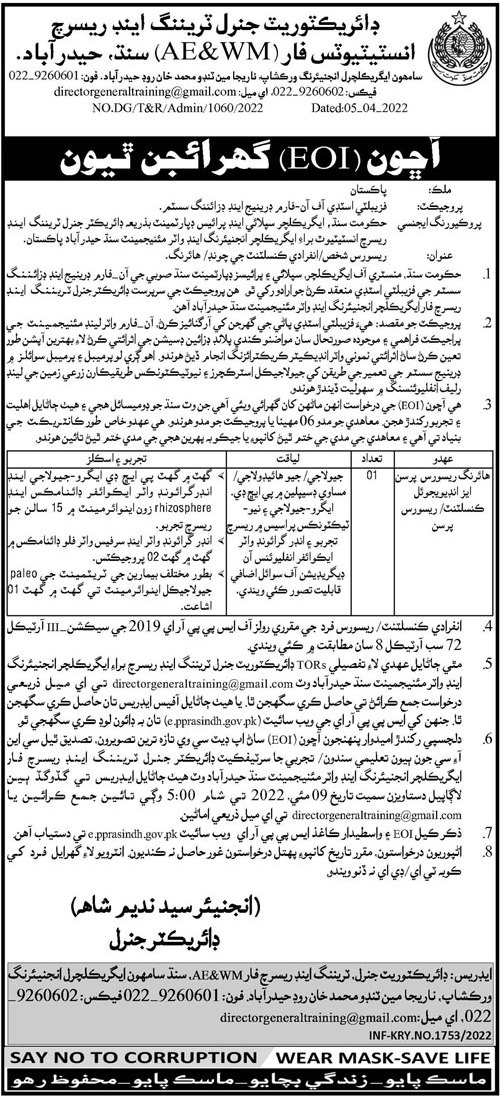 ڊائريڪٽوريٽ جنرل ٽريننگ اينڊ ريسرچ
انسٽيٽيوٽس فار (AE&WM) سنڌ، حيدرآباد.
سامهون ايگريڪلچرل انجنيئرنگ ورڪشاپ، ناريجا مين ٽنڊو محمد خان روڊ حيدرآباد. فون: 9260601_022
فيڪس: 9260602_022، اي ميل: directorgeneraltraining@gmail.com
NO.DG/T&R/Admin/1060/2022 Dated:05_04_2022
آڇون (EOI) گهرائجن ٿيون
ملڪ: پاڪستان
پروجيڪٽ: فزيبلٽي اسٽڊي آف آن-فارم ڊرينيج اينڊ ڊزائننگ سسٽم.
پروڪيورنگ ايجنسي حڪومت سنڌ، ايگريڪلچر سپلائي اينڊ پرائيس ڊپارٽمينٽ بذريعه ڊائريڪٽر جنرل ٽريننگ اينڊ
ريسرچ انسٽيٽيوٽ براءِ ايگريڪلچر انجنيئرنگ اينڊ واٽر مئنيجمينٽ سنڌ حيدرآباد پاڪستان.
عنوان: ريسورس شخص/انفرادي ڪنسلٽنٽ جي چونڊ/ هائرنگ.
1. حڪومت سنڌ، منسٽري آف ايگريڪلچر، سپلائي ۽ پرائيسز ڊپارٽمينٽ سنڌ صوبي جي آن_فارم ڊرينيج اينڊ ڊزائننگ
سسٽم جي فزيبلٽي اسٽڊي منعقد ڪرڻ جو ارادو رکي ٿو. هن پروجيڪٽ جي سرپرست ڊائريڪٽر جنرل ٽريننگ اينڊ
ريسرچ فار ايگريڪلچر انجنيئرنگ اينڊ واٽر مئنيجمينٽ سنڌ حيدرآباد آهن.
2. پروجيڪٽ جو مقصد: هيءَ فزيبلٽي اسٽڊي پاڻي جي گهرجن کي آرگنائيز ڪرڻ، آن_فارم واٽر لينڊ مئنيجمينٽ جي
پراجيڪٽ فراهمي ۽ موجوده صورتحال سان مواصلو ڪندي پلانڊ ڊزائين ڊسيشن جي اثرائتي ڪرڻ لاءِ بهترين آپشن طور
تعين ڪرڻ سان اثرائتي نموني واٽر انڊيڪيٽر ڪريڪٽرائزنگ انجام ڏيڻ هوندو. اهو گري لو پرميبل ۽ پرميبل سوائلز ۾
ڊرينيج سسٽم جي تعمير جي طريقن کي جيولاجيڪل اسٽرڪچرز ۽ نيوٽيڪٽونڪس طريقيڪارن زرعي زمين جي لينڊ
رليف انفلوئنسنگ ۾ سهوليت ڏيندڙ هوندو.
3. هي آڇون (EOI) جي درخواست انهن ماڻهن کان گهرائي ويئي آهي جن وٽ سنڌ جو ڊوميسائل هجي ۽ هيٺ ڄاڻايل اهليت
۽ تجربو رکندڙ هجن. معاهدي جو مدو 06 مهينا يا پروجيڪٽ جو مدو هوندو. هي عهدو خاص طور ڪانٽريڪٽ جي
بنياد تي آهي ۽ معاهدي جي مدي جي ختم ٿيڻ کانپو يا جيڪو به پهرين هجي جي مدي ختم ٿيڻ تائين هوندو.
عهدو تعداد لياقت تجربو ۽ اسڪلز
هائرنگ ريسورس پرسن
ايز انڊيويجوئل
ڪنسلٽنٽ/ ريسورس
پرسن
01
جيولاجي/ جيو هائيڊولاجي/
مساوي ڊسيپلين ۾ پي ايڇ ڊي.
ايگرو-جيولاجي ۽ نيو-
ٽيڪٽونڪس پراسيس ۾ ريسرچ
تجربو ۽ انڊر گرائونڊ واٽر
ايڪوائفر انفلوئنس آن
ڊيگريڊيشن آف سوائل اضافي
قابليت تصور ڪئي ويندي.
گهٽ ۾ گهٽ پي ايڇ ڊي ايگرو-جيولاجي اينڊ
انڊرگرائونڊ واٽر ايڪوائفر ڊائنامڪس اينڊ
rhizosphere زون اينوائرمينٽ ۾ 15 سالن جو
ريسرچ تجربو.
انڊر گرائونڊ واٽر اينڊ سرفيس واٽر فلو ڊائنامڪس ۾
گهٽ ۾ گهٽ 02 پروجيڪٽس.
بطور مختلف بيمارين جي ٽريٽمينٽ جي paleo
جيولاجيڪل اينوائرمينٽ تي گهٽ ۾ گهٽ 01
اشاعت.
4. انفرادي ڪنسلٽنٽ/ ريسورس فرد جي مقرري رولز آف ايس پي پي آر اي 2019 جي سيڪشن_III آرٽيڪل
72 سب آرٽيڪل 8 سان مطابقت ۾ ڪئي ويندي.
5. مٿي ڄاڻايل عهدي لاءِ تفصيلي TORs ڊائريڪٽوريٽ جنرل ٽريننگ اينڊ ريسرچ براءِ ايگريڪلچر انجنيئرنگ
اينڊ واٽر مئنيجمينٽ سنڌ حيدرآباد وٽ directorgeneraltraining@gmail.com تي اي ميل ذريعي
درخواست جمع ڪرائڻ تي حاصل ڪري سگهجن ٿا. يا هيٺ ڄاڻايل آفيس ايڊريس تان حاصل ڪري سگهجن
ٿا. جنهن کي ايس پي پي آر اي جي ويب سائيٽ (e.pprasindh.gov.pk) تان به ڊائون لوڊ ڪري سگهجي ٿو.
6. دلچسپي رکندڙ اميدوار پنهنجون آڇون (EOI) سان اپ ڊيٽ سي وي تازه ترين تصويرون، تصديق ٿيل سي اين
آءِ سي جون ٻيون تعليمي سندون/ تجربي جا سرٽيفڪيٽ ڊائريڪٽر جنرل ٽريننگ اينڊ ريسرچ فار
ايگريڪلچر انجنيئرنگ اينڊ واٽر مئنيجمينٽ سنڌ حيدرآباد وٽ هيٺ ڄاڻايل ايڊريس تي گڏوگڏ ٻين
لاڳاپيل دستاويزن سميت تاريخ 09 مئي، 2022 تي شام 5:00 وڳي تائين جمع ڪرائين يا
directorgeneraltraining@gmail.com تي اي ميل ذريعي.
7. ذڪر ڪيل EOI ۽ واسطيدار ڪاغذ ايس پي پي آر اي ويب سائيٽ e.pprasindh.gov.pk تي دستياب آهن.
8. اڻپوريون درخواستون، مقرر تاريخ کانپوءِ پهتل درخواستون غور حاصل نه ڪنديون. انٽرويو لاءِ گهرايل فرد کي
ڪو به ٽي اي/ ڊي اي نه ڏنو ويندو.
(انجنيئر سيد نديم شاهه)
ڊائريڪٽر جنرل
ايڊريس: ڊائريڪٽوريٽ جنرل، ٽريننگ اينڊ ريسرچ فار AE&WM، سنڌ سامهون ايگريڪلچرل انجنيئرنگ
ورڪشاپ، ناريجا مين ٽنڊو محمد خان روڊ حيدرآباد. فون: 9260601_022 فيڪس: 9260602_
022، اي ميل: directorgeneraltraining@gmail.com
INF-KRY.NO.1753/2022
SAY NO TO CORRUPTION WEAR MASK-SAVE LIFE
ماسڪ پايو_زندگي بچايو_ماسڪ پايو_محفوظ رهو